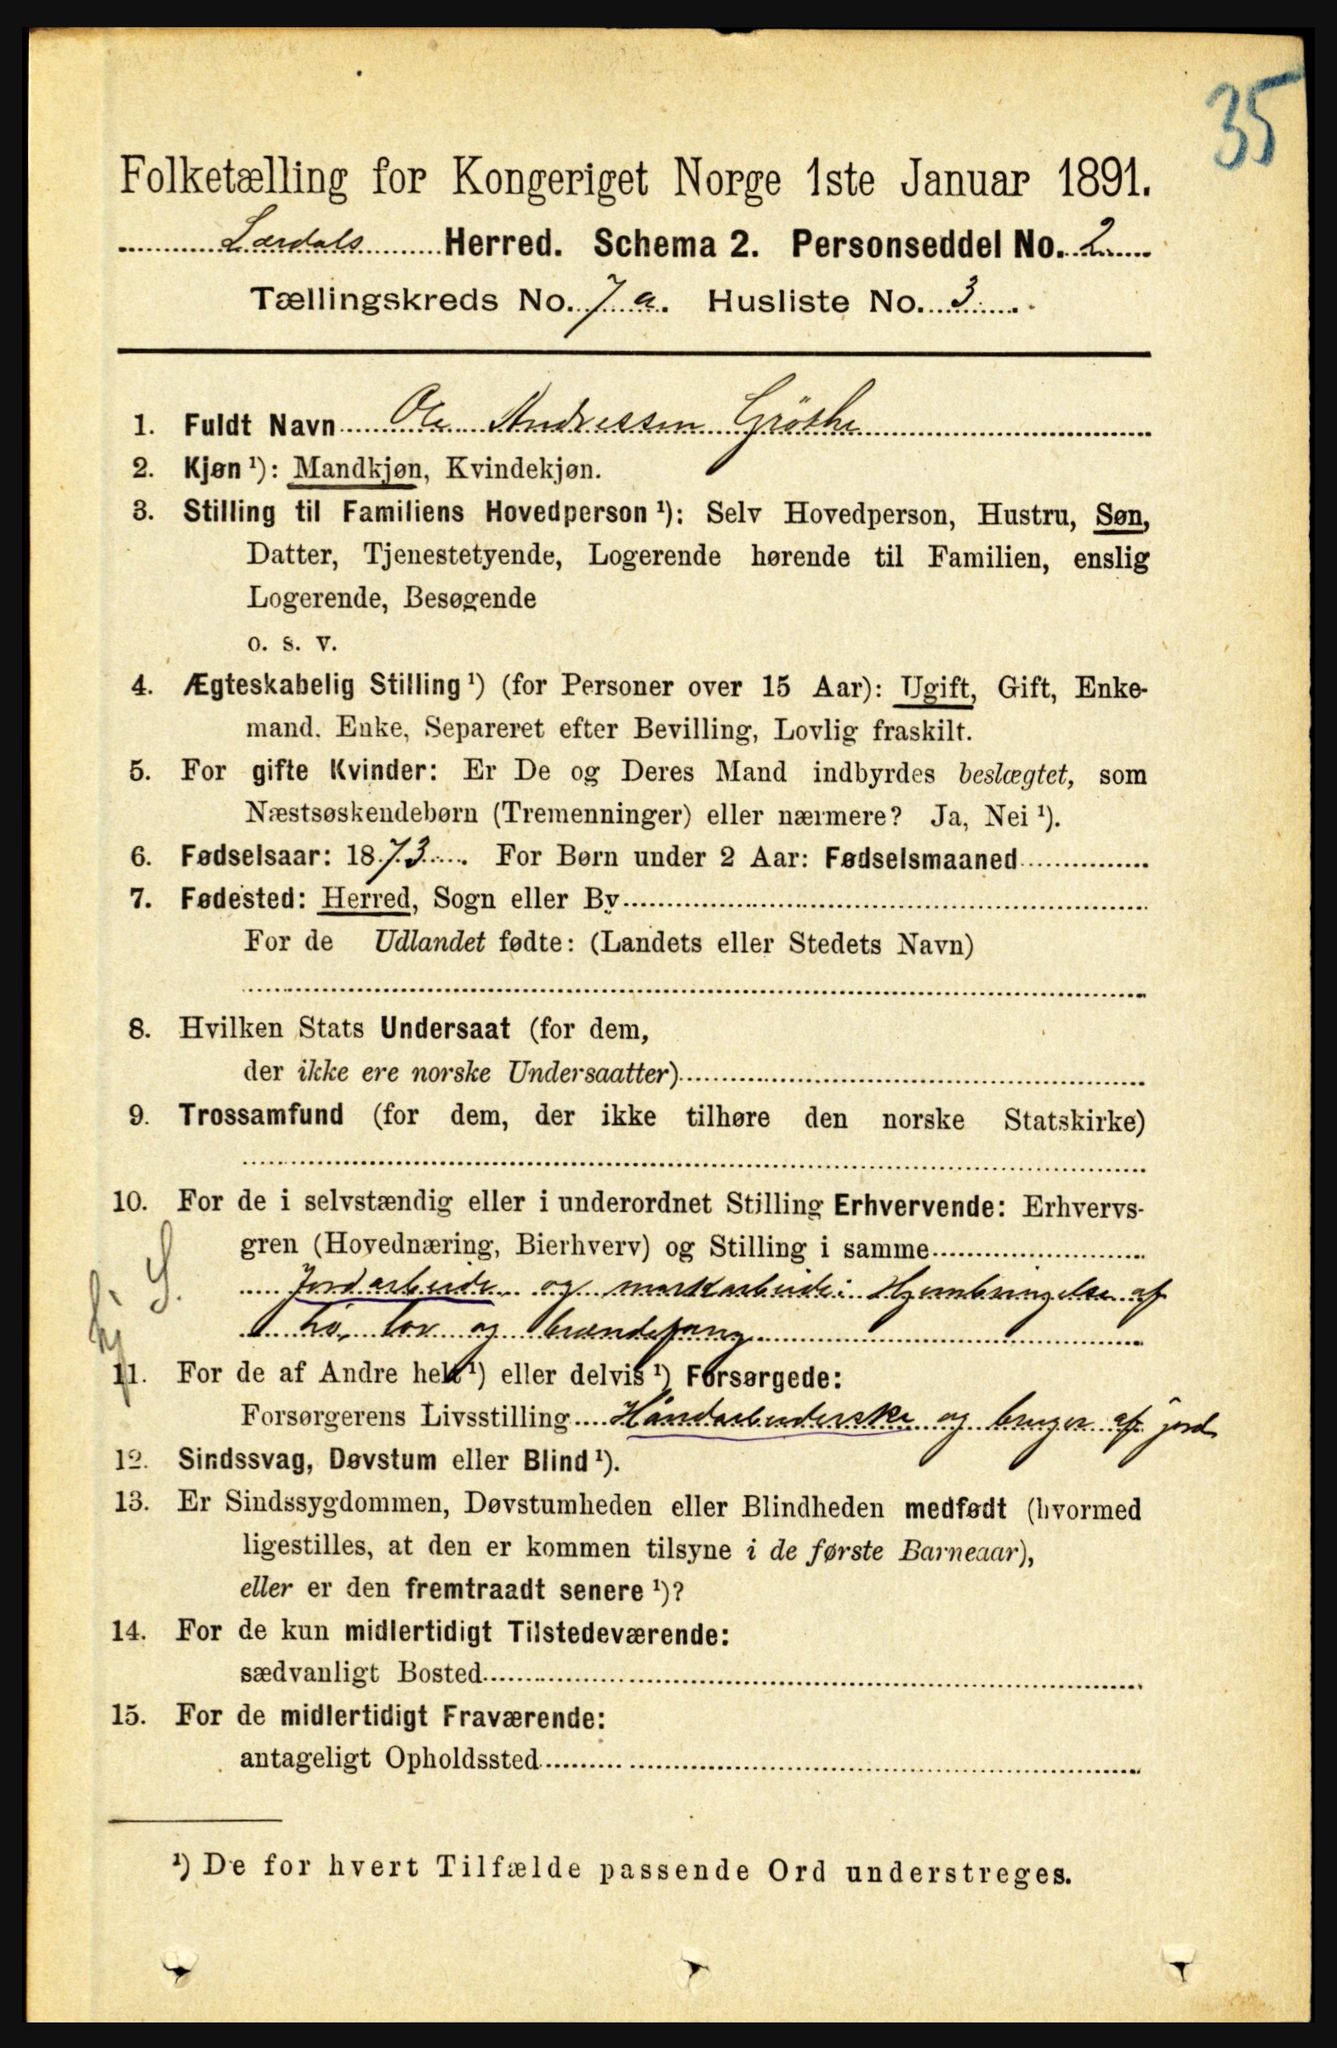 35
Folketælling for Kongeriget Norge 1ste Januar 1891.
Lærdals Herred. Schema 2. Personseddel No. 2
Tællingskreds No. 7 a. Husliste No. 3
1. Fuldt Navn Ole Andressen Gröthe
2. Kjøn ¹): Mandkjøn, Kvindekjøn.
3. Stilling til Familiens Hovedperson ¹): Selv Hovedperson, Hustru, Søn,
Datter, Tjenestetyende, Logerende hørende til Familien, enslig
Logerende, Besøgende
o. s. v.
4. Ægteskabelig Stilling ¹) (for Personer over 15 Aar): Ugift, Gift, Enke-
mand, Enke, Separeret efter Bevilling, Lovlig fraskilt.
5. For gifte Kvinder: Er De og Deres Mand indbyrdes beslægtet, som
Næstsøskendebørn (Tremenninger) eller nærmere? Ja, Nei ¹).
6. Fødselsaar: 1873. For Børn under 2 Aar: Fødselsmaaned
7. Fødested: Herred, Sogn eller By
For de Udlandet fødte: (Landets eller Stedets Navn)
8. Hvilken Stats Undersaat (for dem,
der ikke ere norske Undersaatter)
9. Trossamfund (for dem, der ikke tilhøre den norske Statskirke)
10. For de i selvstændig eller i underordnet Stilling Erhvervende: Erhvervs-
gren (Hovednæring, Bierhverv) og Stilling i samme
Jordarbeide og markarbeide i Hjembringelse af
hö, löv og brændefang
11. For de af Andre helt ¹) eller delvis ¹) Forsørgede:
Forsørgerens Livsstilling Håndarbeiderske og bruger af jord
12. Sindssvag, Døvstum eller Blind ¹).
13. Er Sindssygdommen, Døvstumheden eller Blindheden medfødt (hvormed
ligestilles, at den er kommen tilsyne i de første Barneaar),
eller er den fremtraadt senere ¹)?
14. For de kun midlertidigt Tilstedeværende:
sædvanligt Bosted
15. For de midlertidigt Fraværende:
antageligt Opholdssted
¹) De for hvert Tilfælde passende Ord understreges.